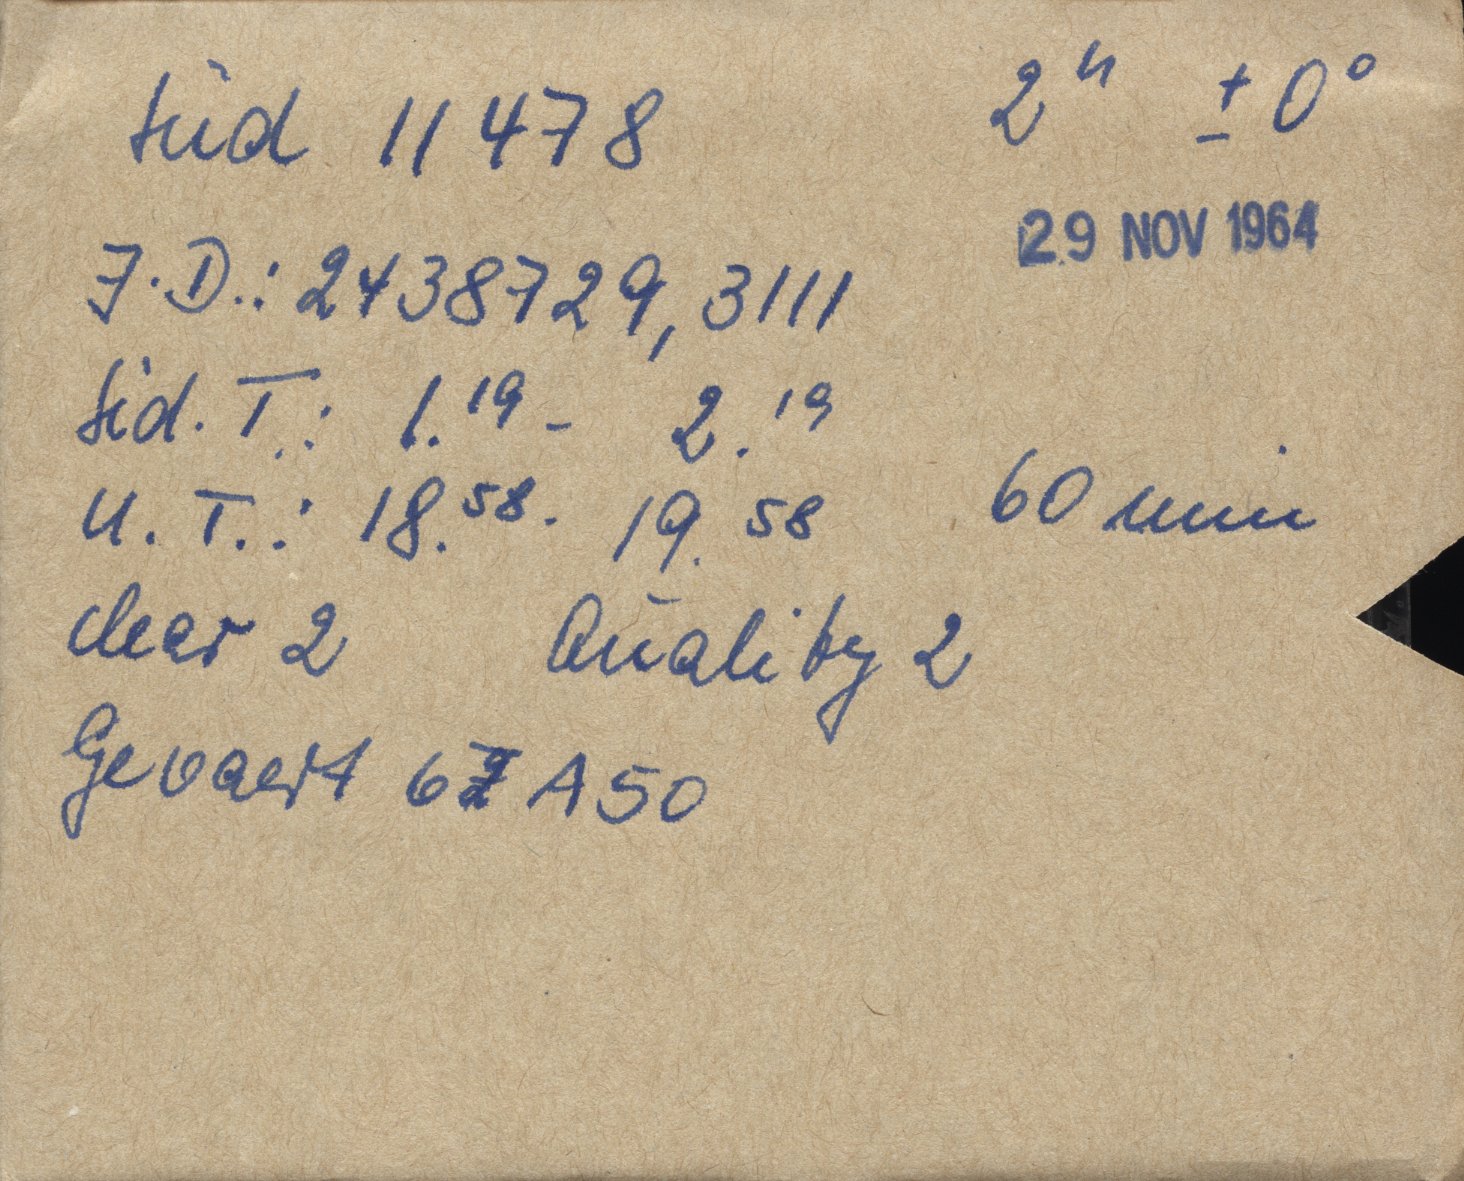 Süd 11478 2ʰ ± 0°
29 NOV 1964
J.D.: 2438729,3111
Sid. T.: 1.¹⁹ - 2.¹⁹
U. T.: 18.⁵⁸ - 19.⁵⁸ 60 min
clear 2 Quality 2
Gevaert 67 A 50